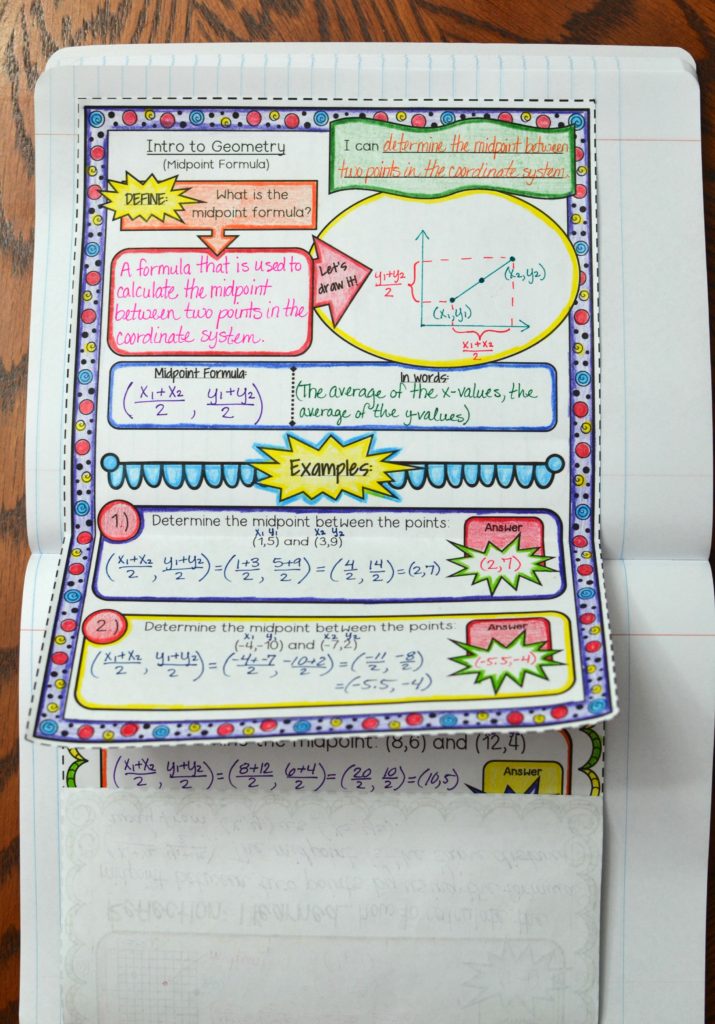 Intro to Geometry
(Midpoint Formula)
I can determine the midpoint between
two points in the coordinate system.
DEFINE:
What is the
midpoint formula?
A formula that is used to
calculate the midpoint
between two points in the
coordinate system.
Let's
draw it!
y₁+y₂
2
(x₂,y₂)
(x₁,y₁)
x₁+x₂
2
Midpoint Formula:
(x₁+x₂/2, y₁+y₂/2)
In words:
(The average of the x-values, the
average of the y-values)
Examples:
1.)
Determine the midpoint between the points:
x₁ y₁ x₂ y₂
(1,5) and (3,9)
(x₁+x₂/2, y₁+y₂/2) = (1+3/2, 5+9/2) = (4/2, 14/2) = (2,7)
Answer
(2,7)
2.)
Determine the midpoint between the points:
x₁ y₁ x₂ y₂
(-4,-10) and (-7,2)
(x₁+x₂/2, y₁+y₂/2) = (-4+-7/2, -10+2/2) = (-11/2, -8/2)
=(-5.5, -4)
Answer
(-5.5,-4)
the midpoint: (8,6) and (12,4)
(x₁+x₂/2, y₁+y₂/2) = (8+12/2, 6+4/2) = (20/2, 10/2) = (10,5)
Answer